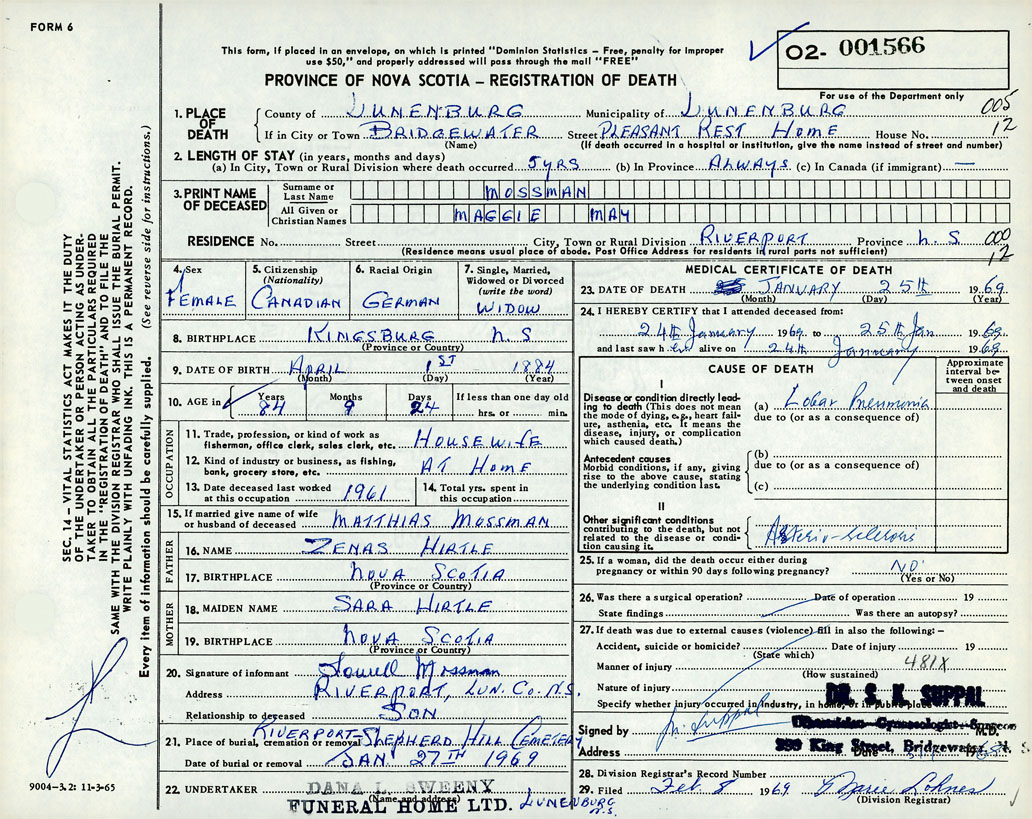 FORM 6
This form, if placed in an envelope, on which is printed "Dominion Statistics – Free, penalty for improper
use $50," and properly addressed will pass through the mail "FREE"
PROVINCE OF NOVA SCOTIA – REGISTRATION OF DEATH
02- 001566
For use of the Department only
005
12
1. PLACE OF DEATH
County of LUNENBURG Municipality of LUNENBURG
If in City or Town BRIDGEWATER Street PLEASANT REST HOME House No.
(Name) (If death occurred in a hospital or institution, give the name instead of street and number)
2. LENGTH OF STAY (in years, months and days)
(a) In City, Town or Rural Division where death occurred 5 YRS (b) In Province ALWAYS (c) In Canada (if immigrant) —
3. PRINT NAME OF DECEASED
Surname or Last Name MOSSMAN
All Given or Christian Names MAGGIE MAY
RESIDENCE No. Street City, Town or Rural Division RIVERPORT Province N.S
(Residence means usual place of abode. Post Office Address for residents in rural parts not sufficient)
000
12
4. Sex
FEMALE
5. Citizenship
(Nationality)
CANADIAN
6. Racial Origin
GERMAN
7. Single, Married,
Widowed or Divorced
(write the word)
WIDOW
8. BIRTHPLACE KINGSBURG N.S
(Province or Country)
9. DATE OF BIRTH APRIL 1ST 1884
(Month) (Day) (Year)
10. AGE in
Years Months Days If less than one day old
84 9 24 hrs. or min.
OCCUPATION
11. Trade, profession, or kind of work as
fisherman, office clerk, sales clerk, etc. HOUSEWIFE
12. Kind of industry or business, as fishing,
bank, grocery store, etc. AT HOME
13. Date deceased last worked
at this occupation 1961
14. Total yrs. spent in
this occupation
15. If married give name of wife
or husband of deceased MATTHIAS MOSSMAN
FATHER
16. NAME ZENAS HIRTLE
17. BIRTHPLACE NOVA SCOTIA
(Province or Country)
MOTHER
18. MAIDEN NAME SARA HIRTLE
19. BIRTHPLACE NOVA SCOTIA
(Province or Country)
20. Signature of informant Lowell Mossman
Address RIVERPORT, LUN. CO. N.S.
Relationship to deceased SON
21. Place of burial, cremation or removal RIVERPORT – SHEPHERD HILL CEMETERY
Date of burial or removal JAN. 27TH 1969
22. UNDERTAKER DANA L. SWEENY
(Name and address)
FUNERAL HOME LTD. LUNENBURG
N.S.
MEDICAL CERTIFICATE OF DEATH
23. DATE OF DEATH JANUARY 25th 1969
(Month) (Day) (Year)
24. I HEREBY CERTIFY that I attended deceased from:
24th January 1969 to 25th Jan 1969
and last saw her alive on 24th January 1969
CAUSE OF DEATH
Approximate
interval be-
tween onset
and death
I
Disease or condition directly lead-
ing to death (This does not mean
the mode of dying, e.g., heart fail-
ure, asthenia, etc. It means the
disease, injury, or complication
which caused death.)
(a) Lobar Pneumonia
due to (or as a consequence of)
Antecedent causes
Morbid conditions, if any, giving
rise to the above cause, stating
the underlying condition last.
(b)
due to (or as a consequence of)
(c)
II
Other significant conditions
contributing to the death, but not
related to the disease or condi-
tion causing it.
25. If a woman, did the death occur either during
pregnancy or within 90 days following pregnancy? NO
(Yes or No)
26. Was there a surgical operation? Date of operation 19
State findings Was there an autopsy?
27. If death was due to external causes (violence) fill in also the following: –
Accident, suicide or homicide? Date of injury 19
(State which)
Manner of injury 481X
(How sustained)
Nature of injury
Specify whether injury occurred in industry, in home, or in public place
DR. S. K. SUPPAL
Signed by M.D.
Address King Street, Bridgewater, N. S.
Date 19
28. Division Registrar's Record Number
29. Filed Feb 8 1969 Marie Lohnes
(Division Registrar)
SEC. 14 – VITAL STATISTICS ACT MAKES IT THE DUTY
OF THE UNDERTAKER OR PERSON ACTING AS UNDER-
TAKER TO OBTAIN ALL THE PARTICULARS REQUIRED
IN THE "REGISTRATION OF DEATH" AND TO FILE THE
SAME WITH THE DIVISION REGISTRAR WHO SHALL ISSUE THE BURIAL PERMIT.
WRITE PLAINLY WITH UNFADING INK. THIS IS A PERMANENT RECORD.
Every item of information should be carefully supplied. (See reverse side for instructions.)
9004–3.2: 11-3-65